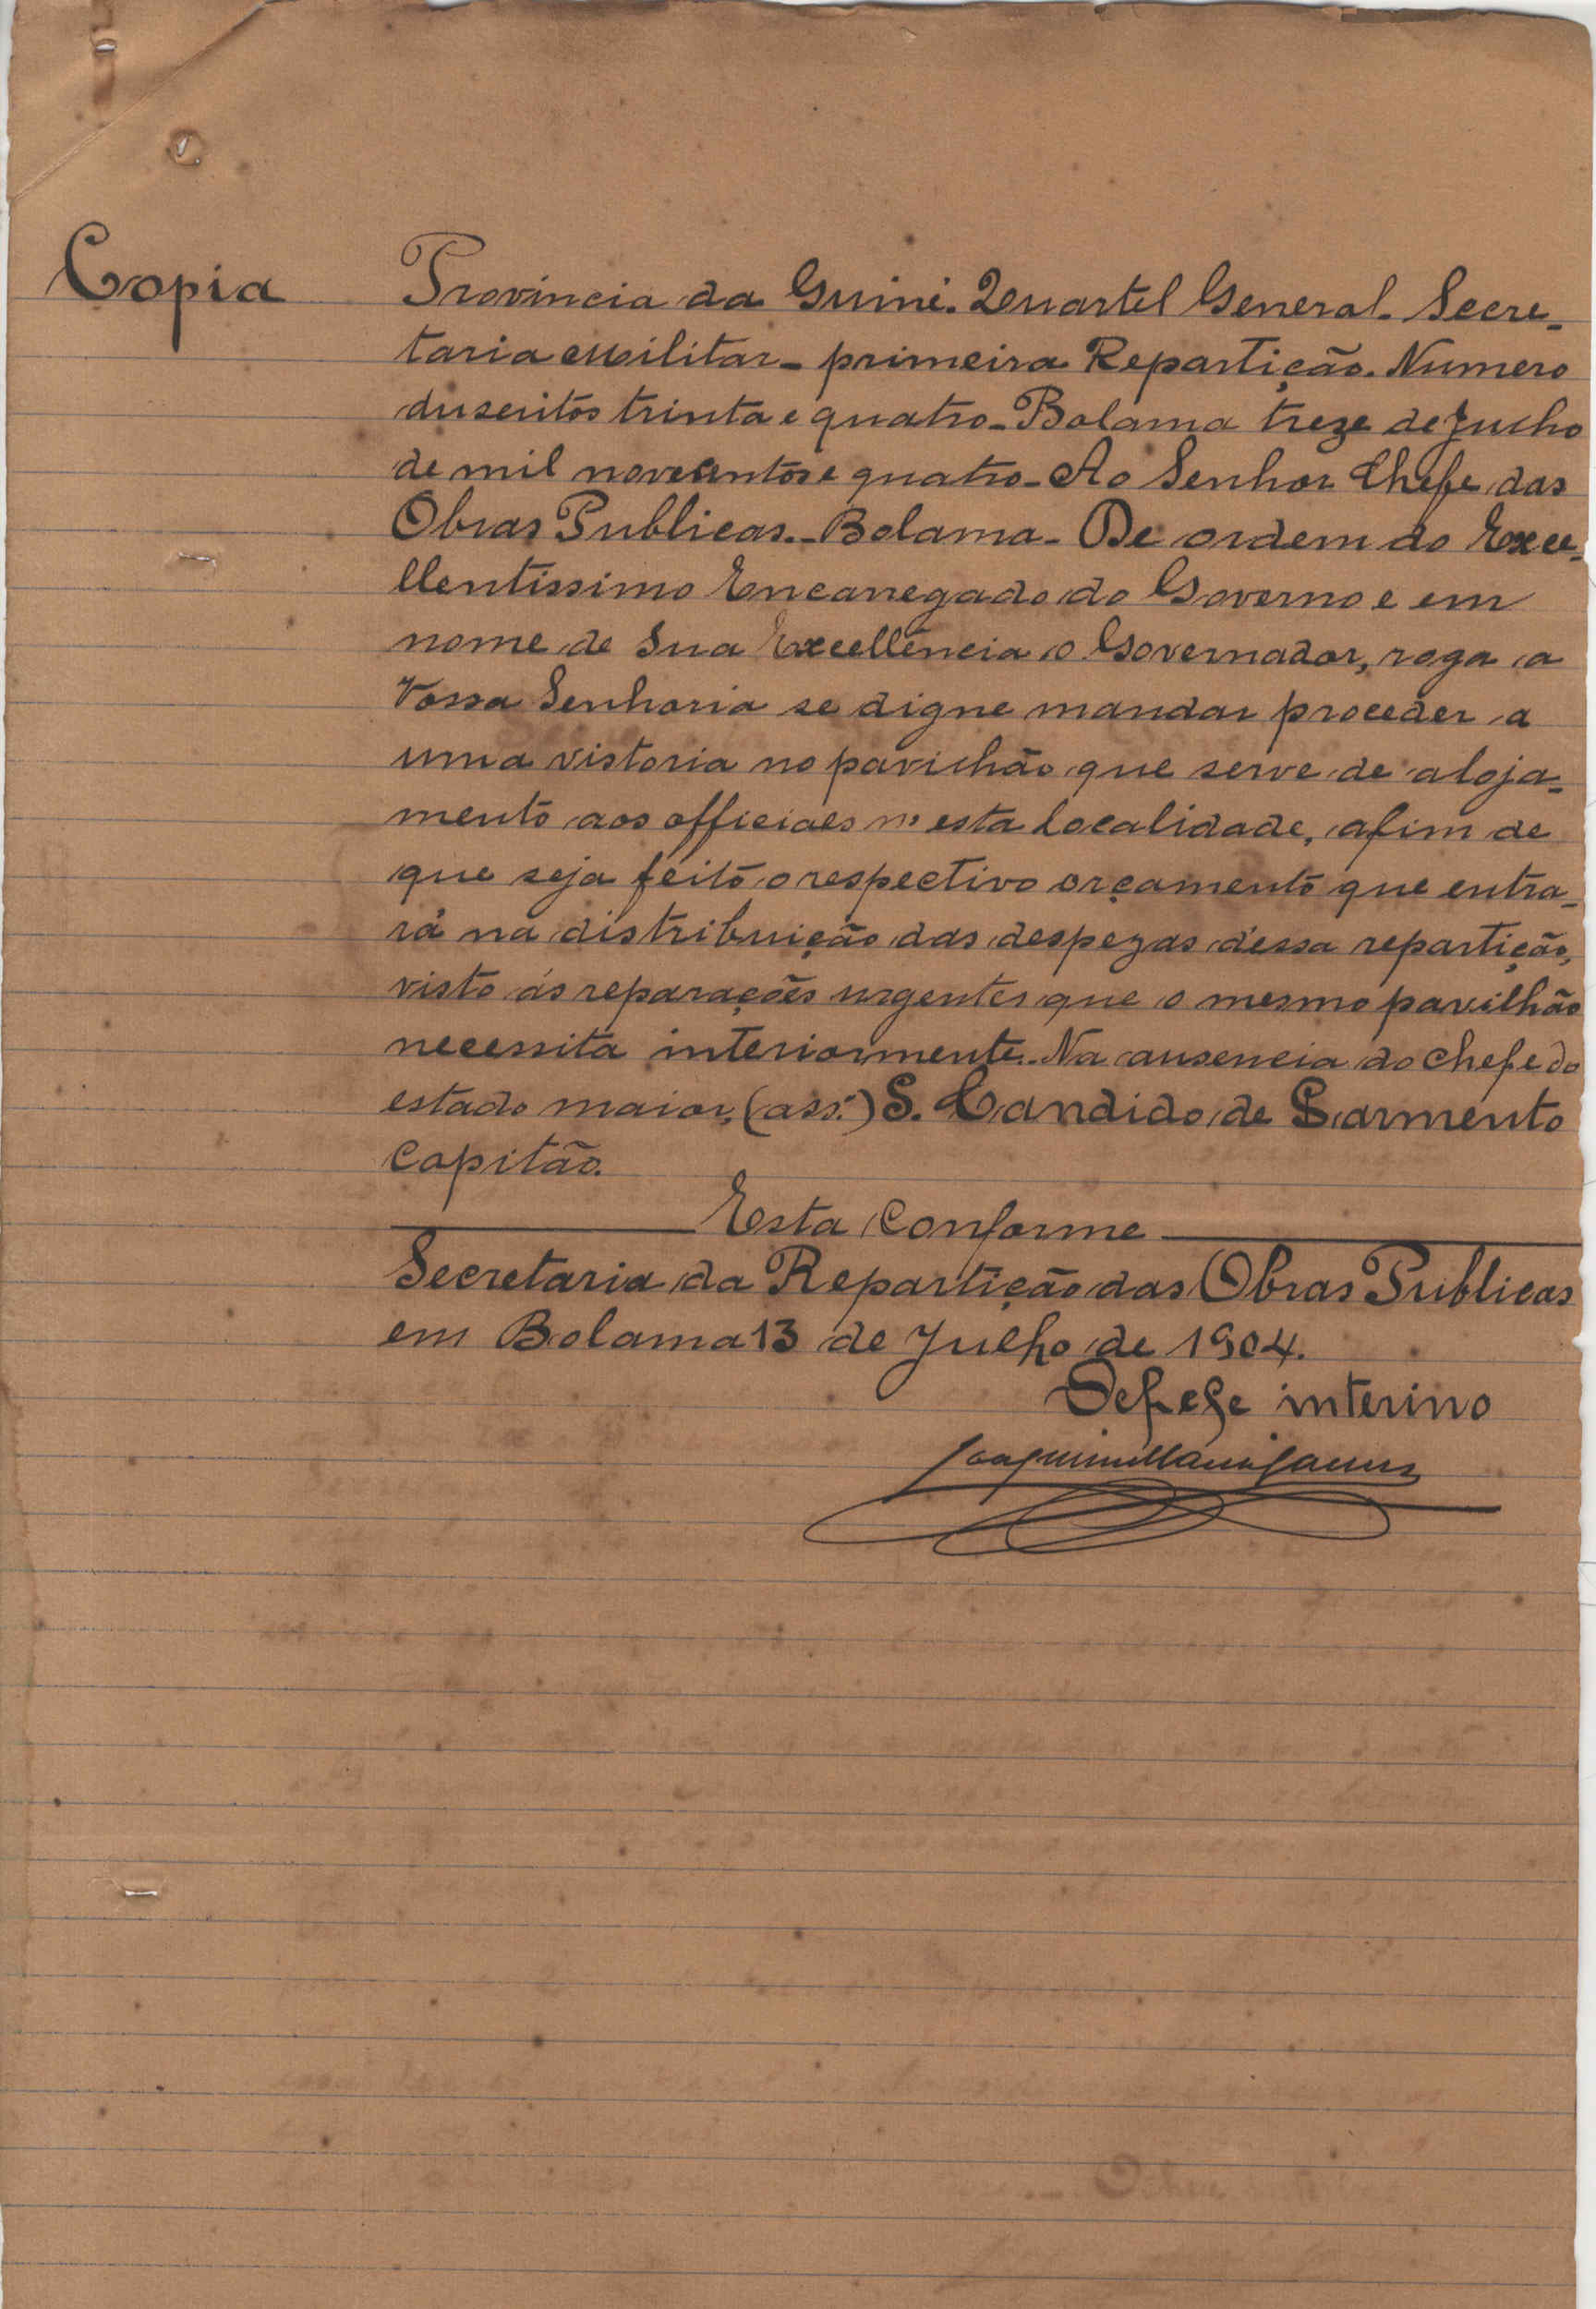 Copia
Provincia da Guiné. Quartel General. Secre-
taria Militar - primeira Repartição. Numero
dusentos trinta e quatro - Bolama treze de Julho
de mil novecentos e quatro - Ao Senhor Chefe das
Obras Publicas. - Bolama - De ordem do Exce-
llentissimo Encarregado do Governo e em
nome de Sua Excellência o Governador, roga a
Vossa Senhoria se digne mandar proceder a
uma vistoria no pavilhão que serve de aloja-
mento aos officiaes n'esta localidade, afim de
que seja feito o respectivo orçamento que entra-
rá na distribuição das despezas d'essa repartição,
visto ás reparações urgentes que o mesmo pavilhão
necessita interiormente. Na ausencia do chefe do
estado maior, (ass:) S. Candido de Sarmento
Capitão.
Esta Conforme
Secretaria da Repartição das Obras Publicas
em Bolama 13 de Julho de 1904.
O chefe interino
Joaquim